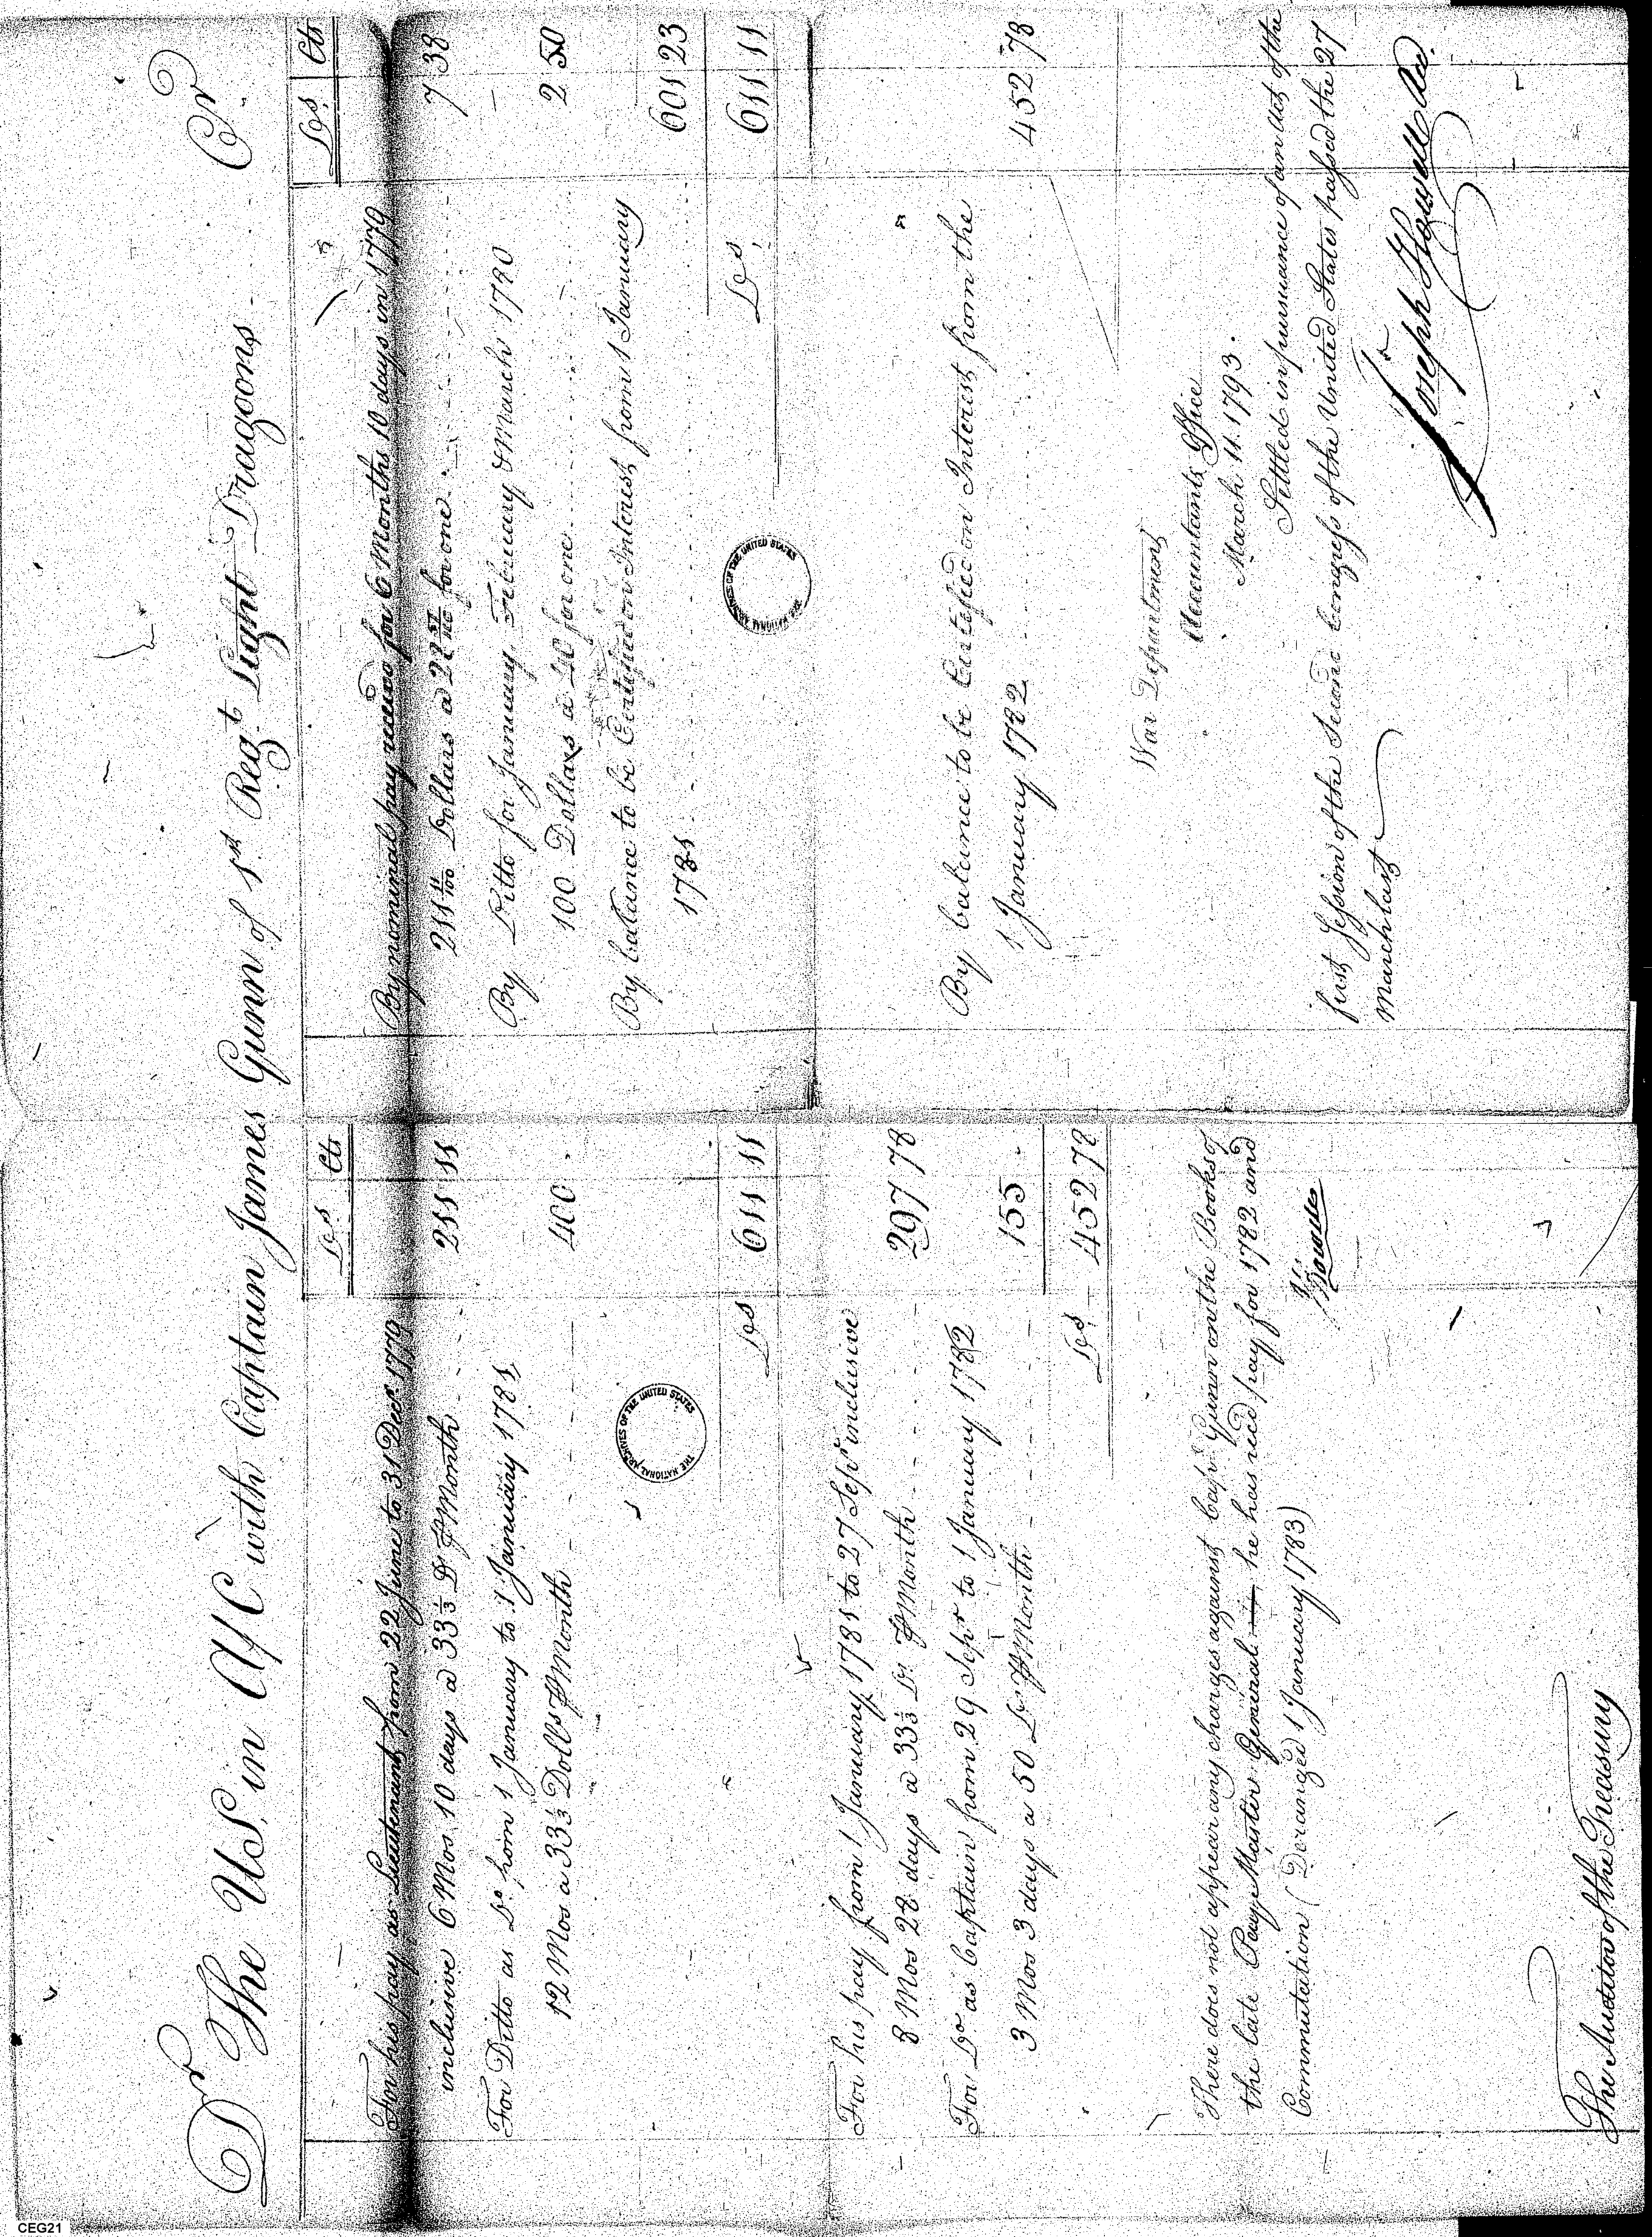 Dr The U.S. in A/C with Captain James Gunn of 1st Regt Light Dragoons Cr
Drs Cts
For his pay as Lieutenant from 22 June to 31 Decr 1779
inclusive 6 Mos. 10 days a 33⅓ Ds ⅌ Month 211 11
For Ditto as Do from 1 January to 1 January 1781
12 Mos a 33⅓ Dolls ⅌ Month 400.
Drs 611 11
For his pay from 1 January 1781 to 27 Sepr inclusive
8 Mos 28 days a 33⅓ Ds. ⅌ Month 297 78
For Do as Captain from 29 Sepr to 1 January 1782
3 Mos 3 days a 50 Ds ⅌ Month 155.
Drs 452 78
There does not appear any charges against Capt Gunn on the Books of
the late Pay Master General he has recd pay for 1782 and
Commutation (Deranged 1 January 1783)
The Auditor of the Treasury
Drs Cts
By nominal pay received for 6 Months 10 days in 1779
211 11/100 Dollars a 28 for one 7 38
By Ditto for January, February & March 1780
100 Dollars a 40 for one 2 50
By balance to be Certified on Interest from 1 January
1781 601 23
Drs 611 11
By balance to be Certified on Interest from the
1 January 1782 452 78
War Department
Accountants Office
March 11. 1793.
Settled in pursuance of an Act of the
first Session of the Second Congress of the United States passed the 27
March last
Joseph Howell
THE NATIONAL ARCHIVES OF THE UNITED STATES
THE NATIONAL ARCHIVES OF THE UNITED STATES
CEG21